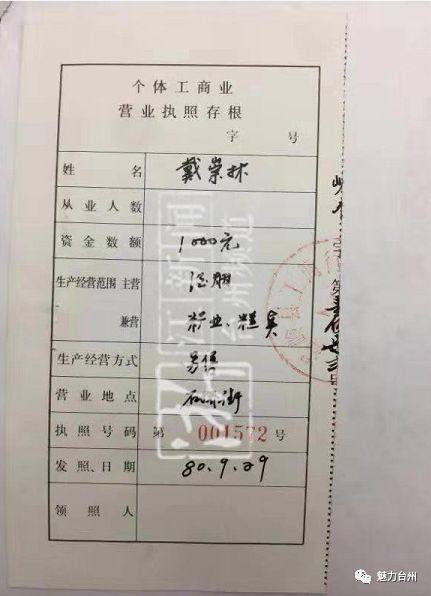 个体工商业
营业执照存根
字 号
姓名 戴崇林
从业人数
资金数额 1000元
生产经营范围 主营
兼营
生产经营方式 另售
营业地点
执照号码 第 001572 号
发照、日期 80.9.29
领照人
浙江新闻
台州频道
魅力台州